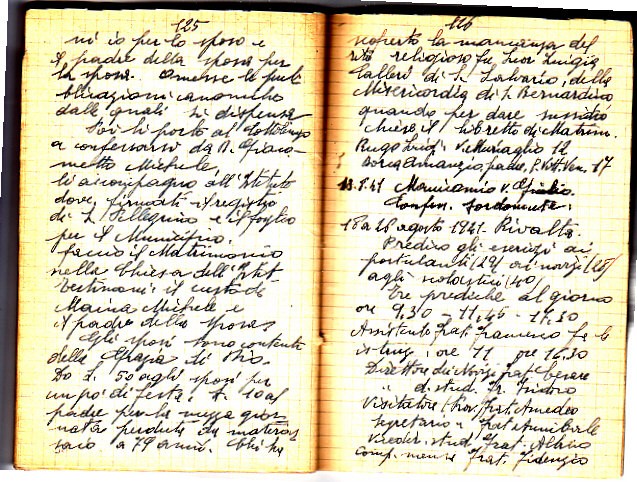 125
ni io per lo sposo e
il padre della sposa per
la sposa. Omesse le pub
blicazioni canoniche
dalle quali si dispensa
Poi li porto al Cottolengo
a confessarsi da D. Giaco
metto Michele,
li accompagno all'Istituto
dove, firmati il registro
di S. Pellegrino e il foglio
per il Municipio,
faccio il Matrimonio
nella Chiesa dell'Istit.
Testimoni: il custode
Maina Michele e
il padre della sposa.
Gli sposi sono contenti
della Grazia di Dio.
Do L. 50 agli sposi per
un po' di festa; L. 10 al
padre per la mezza gior
nata perduta da materas
saio a 79 anni. Chi ha
116
scoperto la mancanza del
rito religioso fu Suor Luigia
Calleri di S. Salvario, della
Misericordia di S. Bernardino
quando per dare sussidio
chiese il libretto di Matrim.
Rugo Luigi V. Muriaglio 12
padre, P. Vitt. Ven. 17
13.8.41 Manicomio v. Giulio
Confess. Sordomuta.
18 a 28 agosto 1941. Rivalta.
Predico gli esercizi ai
postulanti (29) ai novizi (28)
agli scolastici (40)
Tre prediche al giorno
ore 9,30 - 11,45 - 17,30
Assistente frat. Francesco fa le
istruz.: ore 11 ore 16,30
Direttore dei Novizi frat. Cesare
" di stud. fr. Isidoro
Visitatore (Prov.) frat. Amedeo
segretario " frat. Annibale
stud. frat. Albino
frat. Fidenzio